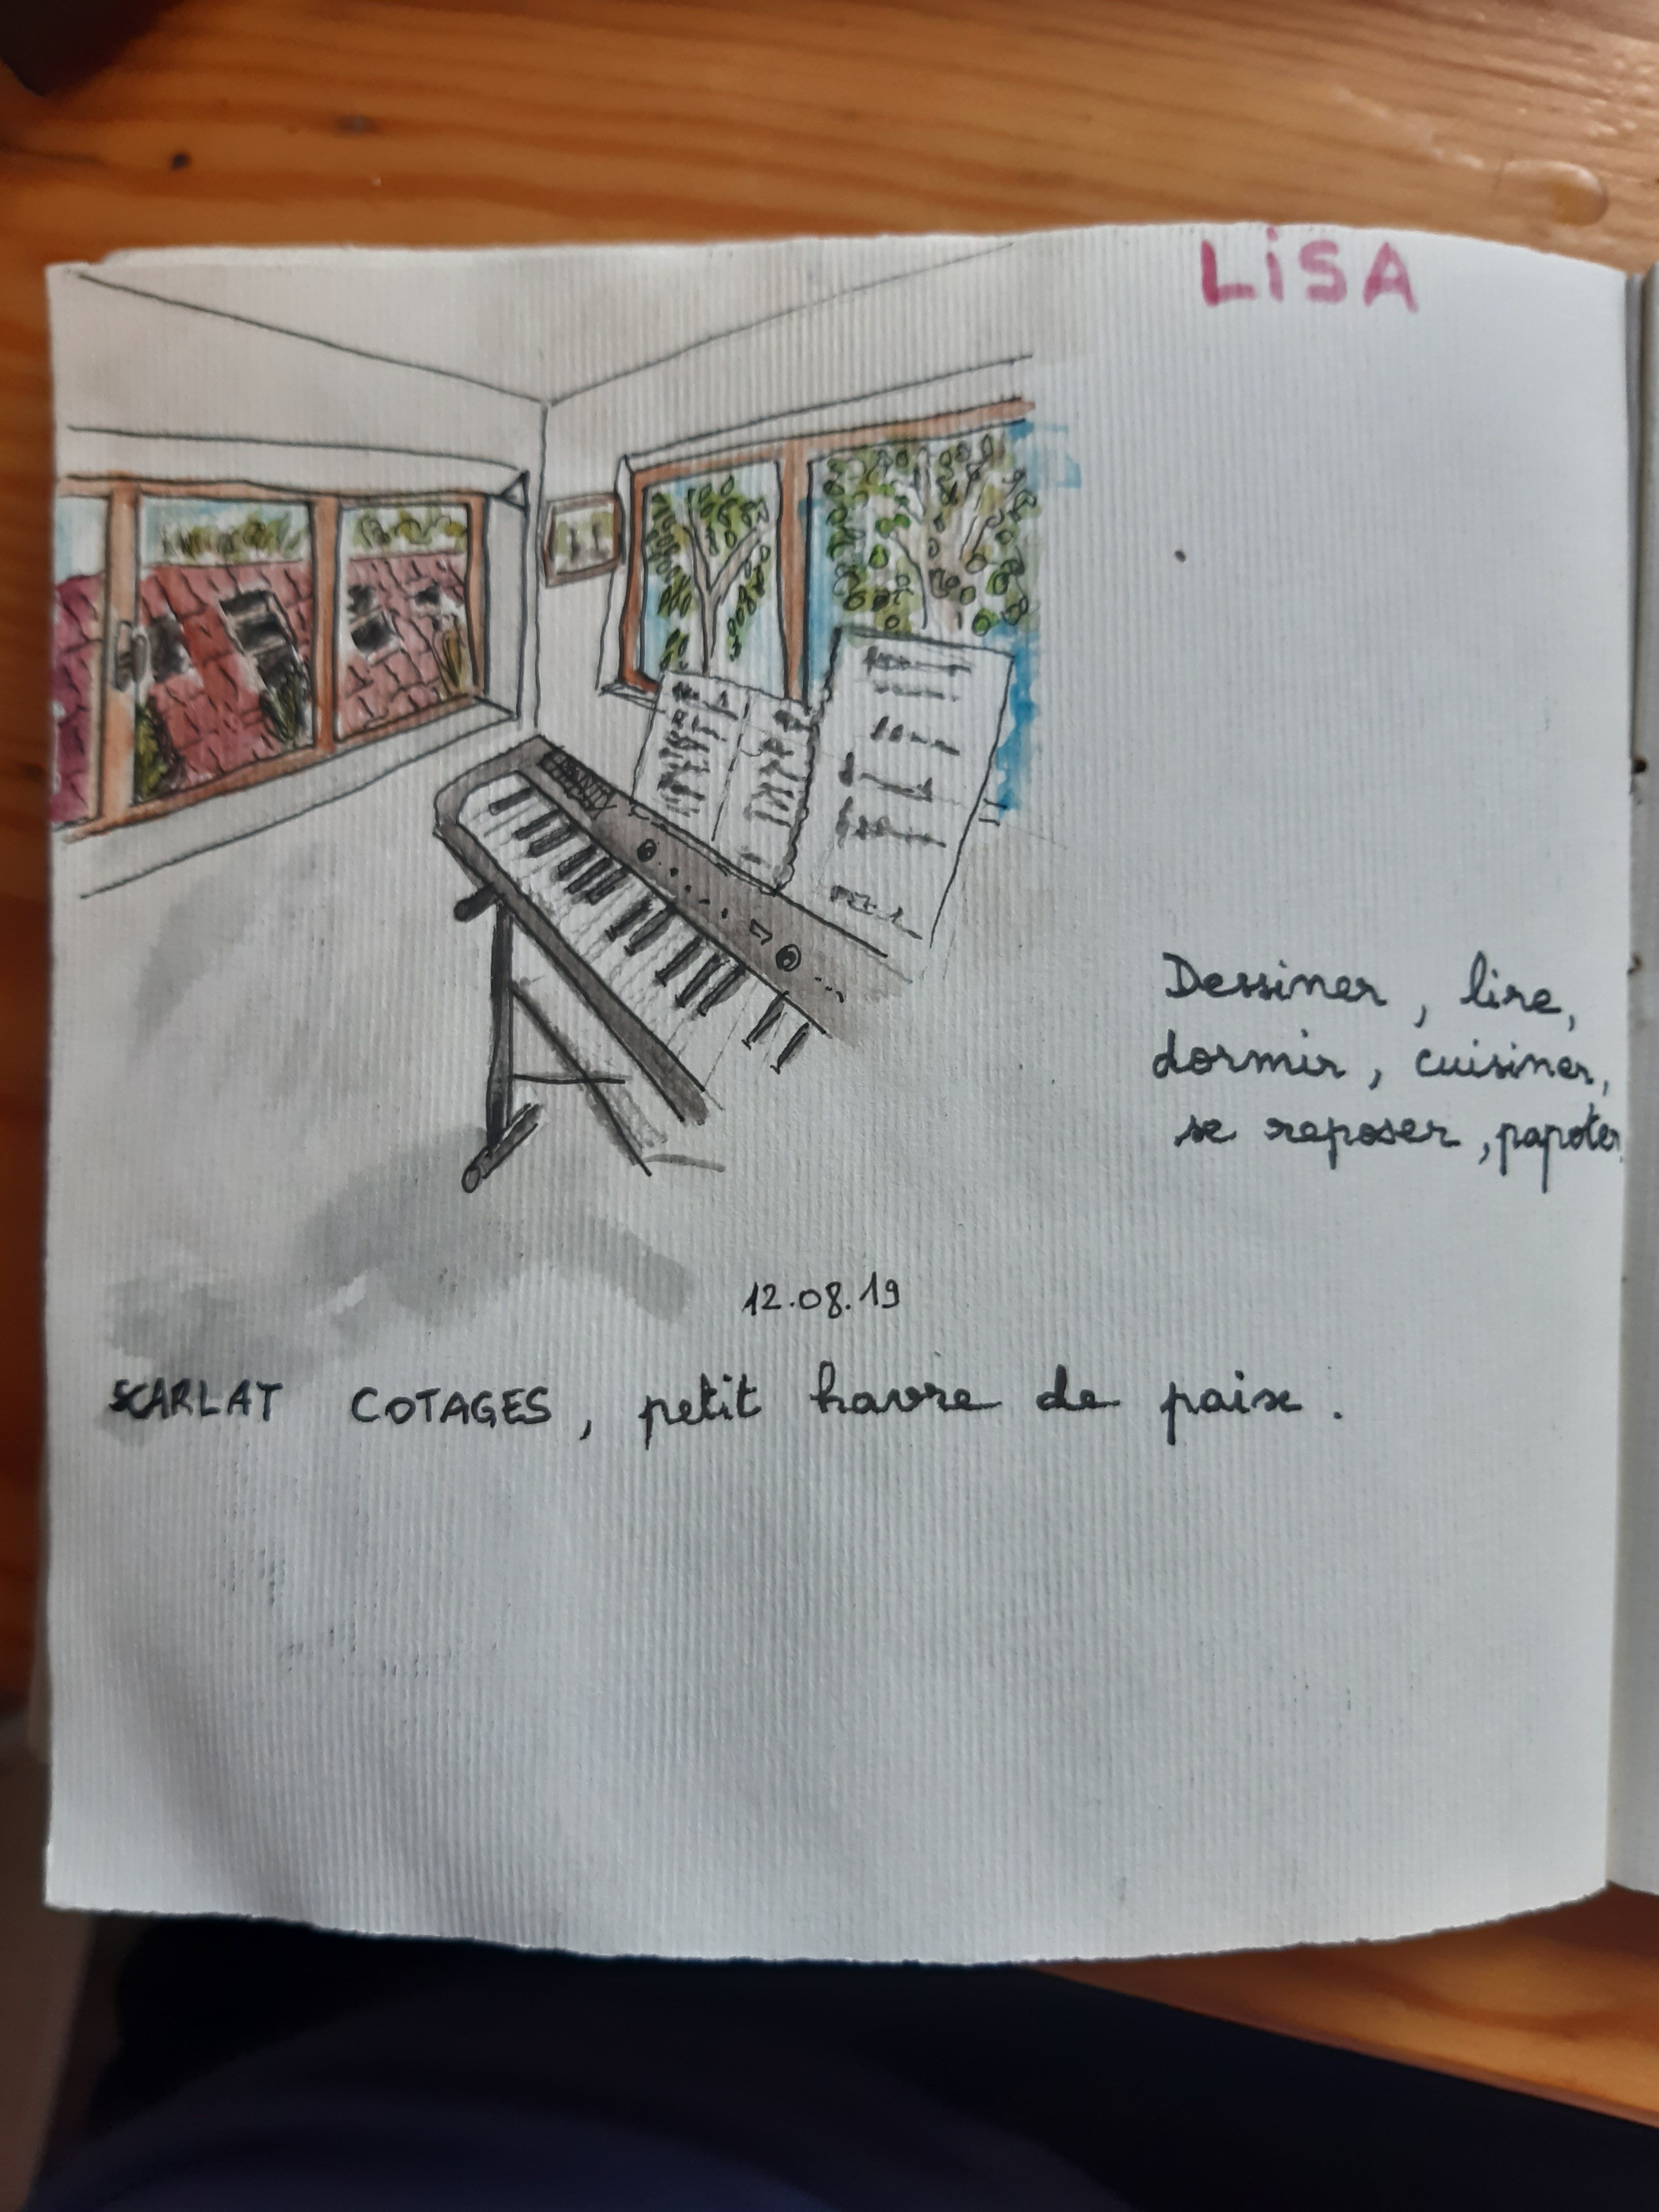 LiSA
Dessiner, lire,
dormir, cuisiner,
se reposer, papoter
12.08.19
SCARLAT COTAGES, petit havre de paix.